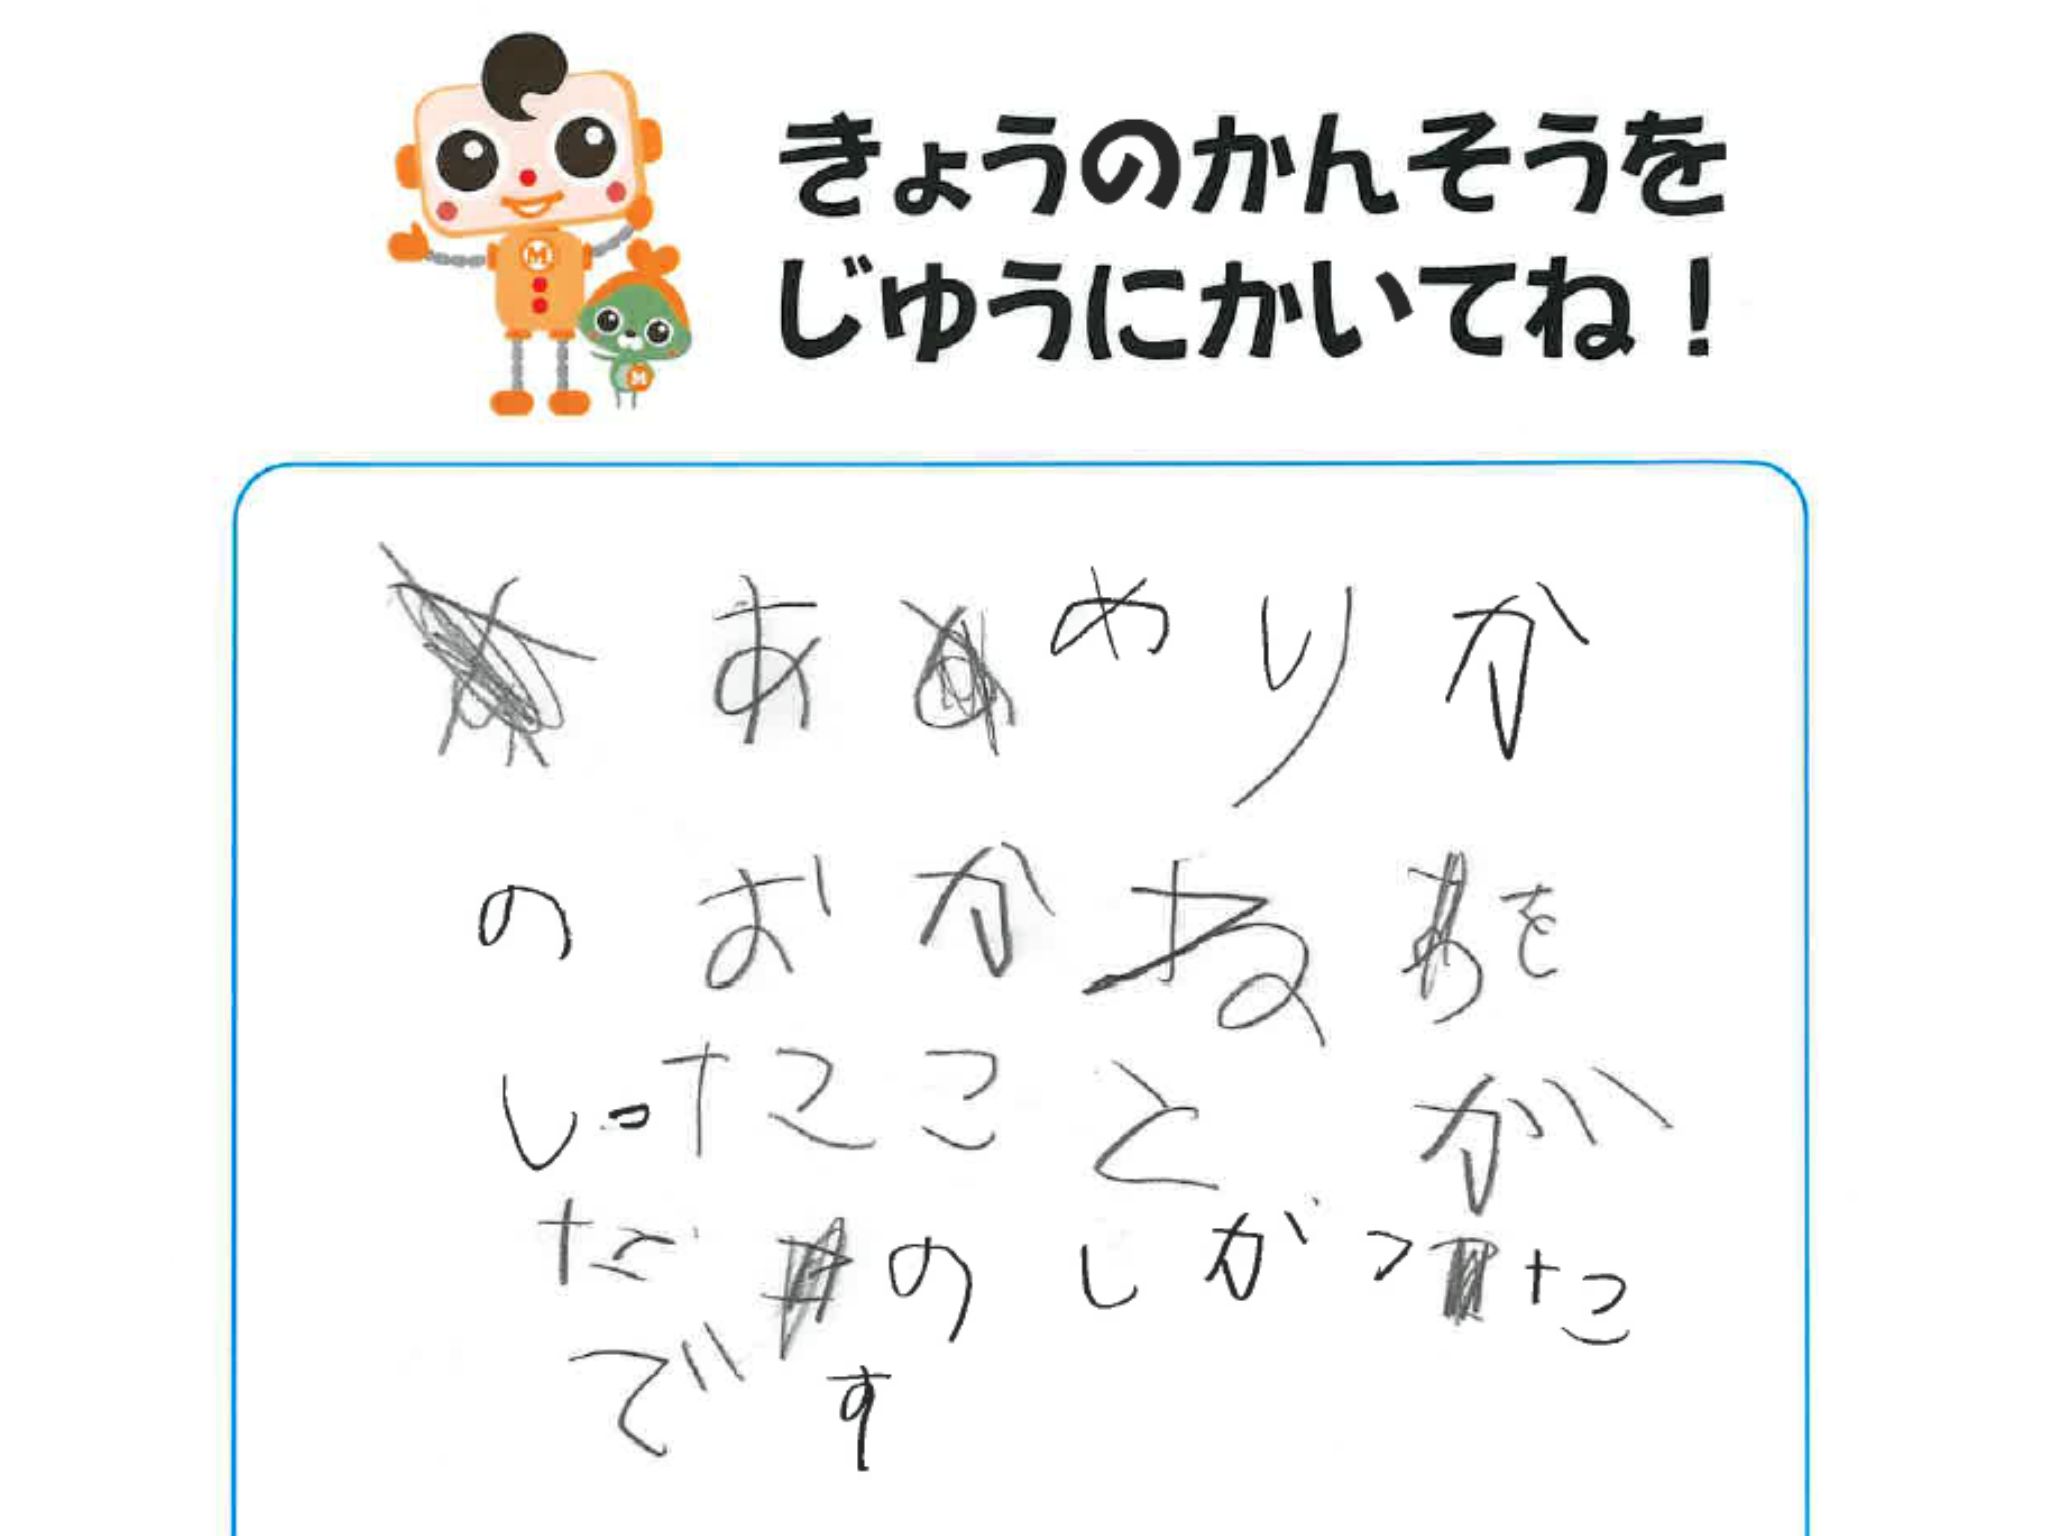 きょうのかんそうを
じゆうにかいてね！
M
M
あめりか
のおかねを
しったことが
たのしがつた
です